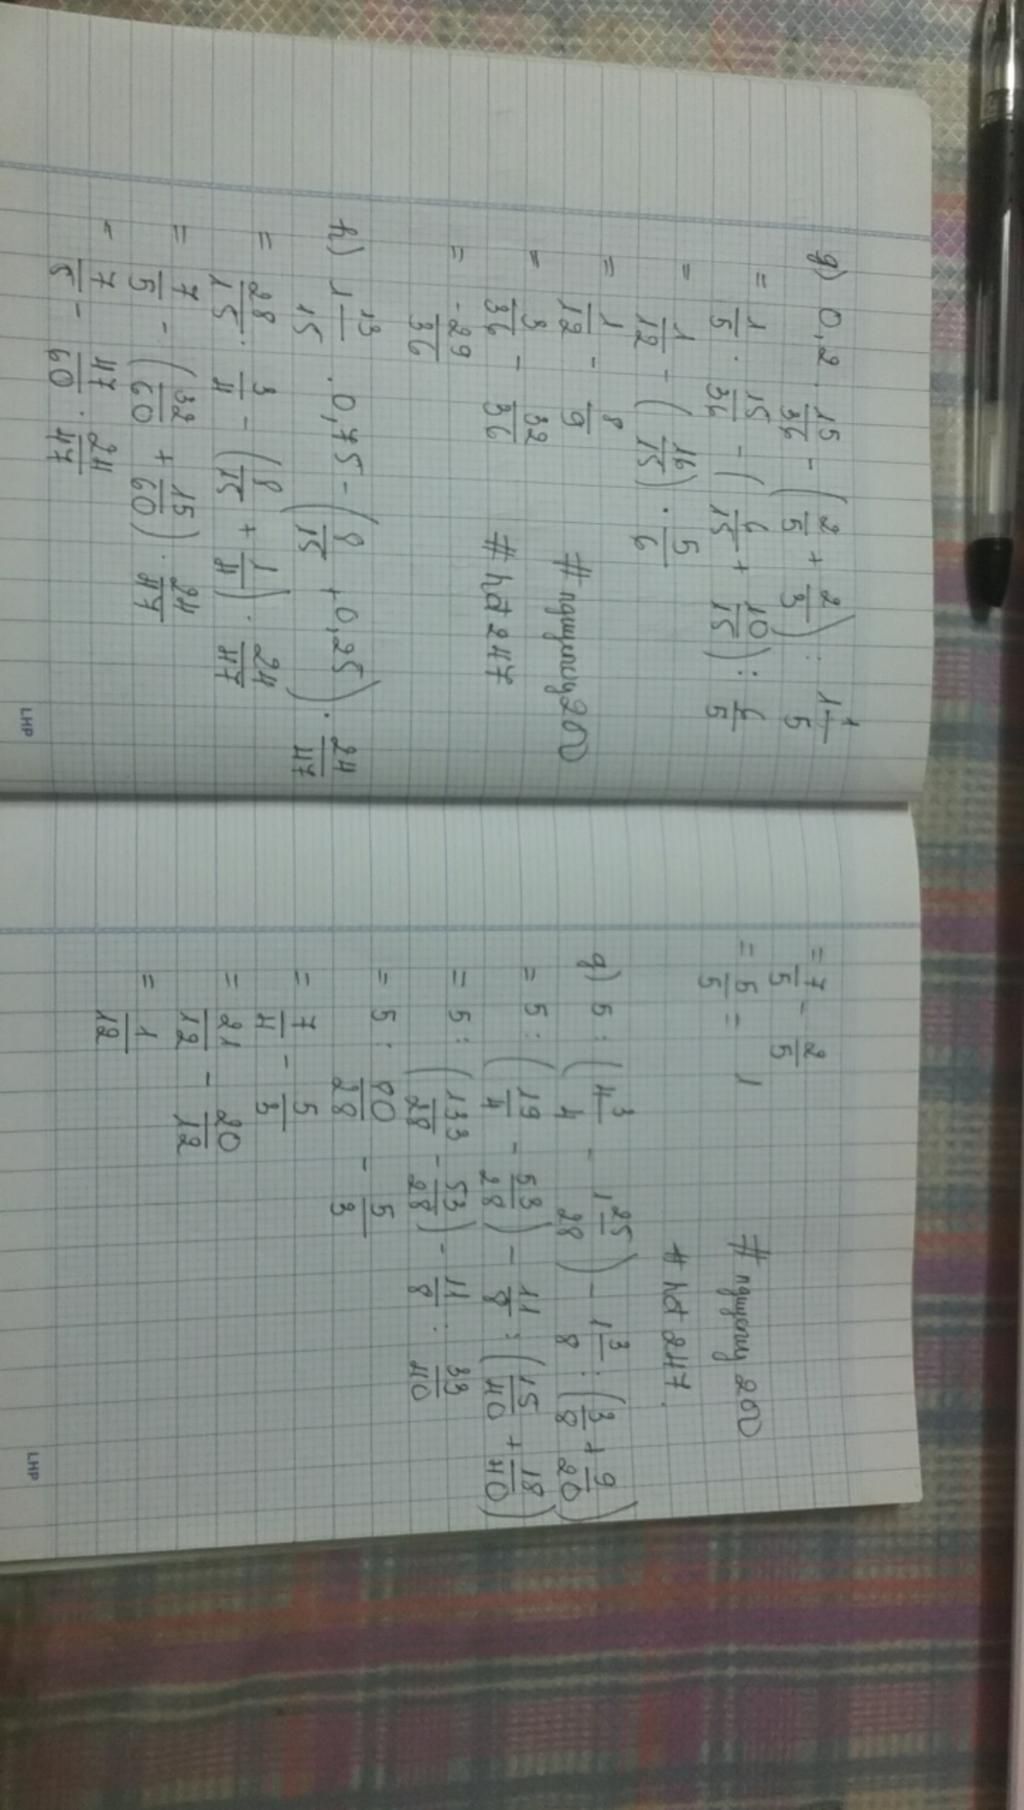 g) 0,2 . 15/36 - (2/5 + 2/3) : 1 1/5
= 1/5 . 15/36 - (6/15 + 10/15) : 6/5
= 1/12 - (16/15) . 5/6
= 1/12 - 8/9
= 3/36 - 32/36
= -29/36
# nguyenny200
# hd247
h) 1 13/15 . 0,75 - (8/15 + 0,25) . 24/47
= 28/15 . 3/4 - (8/15 + 1/4) . 24/47
= 7/5 - (32/60 + 15/60) . 24/47
= 7/5 - 47/60 . 24/47
LHP
= 7/5 - 2/5
= 5/5 = 1
# hd247.
g) 5 : (4 3/4 - 1 25/28) - 1 3/8 : (3/8 + 9/20)
= 5 : (19/4 - 53/28) - 11/8 : (15/40 + 18/40)
= 5 : (133/28 - 53/28) - 11/8 : 33/40
= 5 : 80/28 - 5/3
= 7/4 - 5/3
= 21/12 - 20/12
= 1/12
LHP